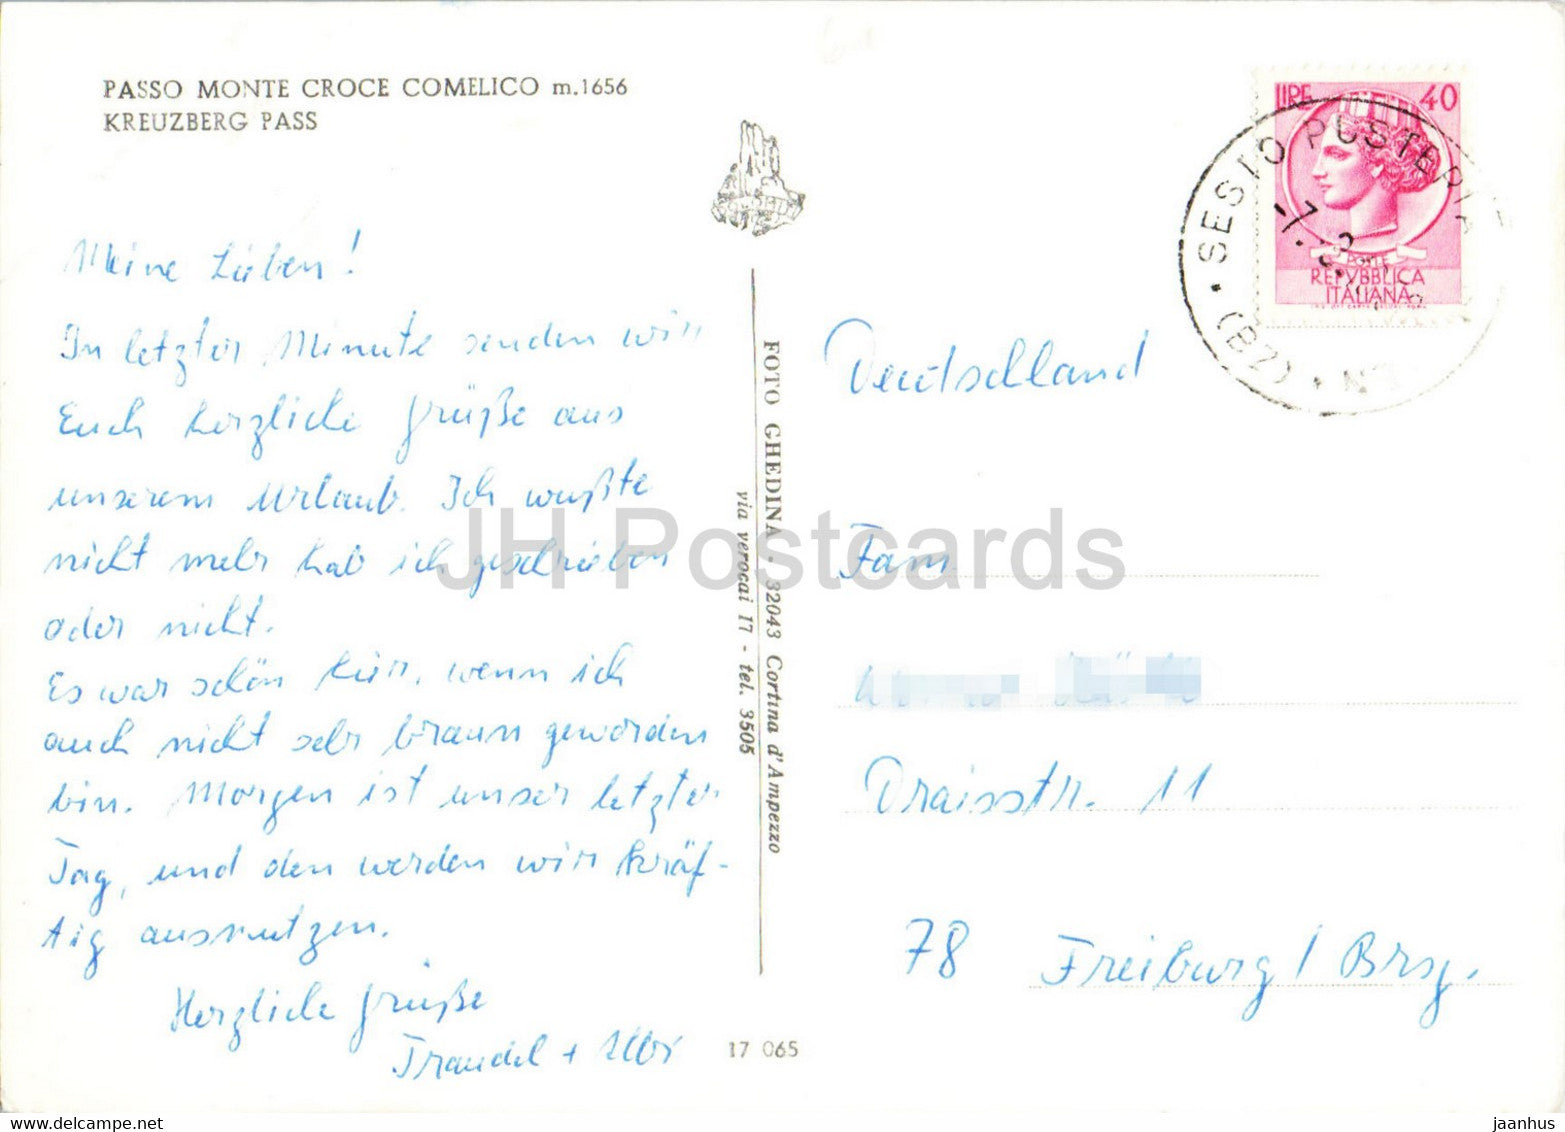 PASSO MONTE CROCE COMELICO m.1656
KREUZBERG PASS
Meine Lieben!
In letzter Minute senden wir
Euch herzliche Grüße aus
unserem Urlaub. Ich wußte
nicht mehr hab ich geschrieben
oder nicht.
Es war schön hier, wenn ich
auch nicht sehr braun geworden
bin. Morgen ist unser letzter
Tag, und den werden wir kräf-
tig ausnutzen.
Herzliche Grüße
Traudel +
FOTO GHEDINA - 32043 Cortina d'Ampezzo
via verocai 17 - tel. 3505
17 065
LIRE 40
POSTE
REPVBBLICA
ITALIANA
SESTO PUSTERIA
(BZ)
Deutschland
Fam.
Draisstr. 11
78 Freiburg / Brsg.
JH Postcards
jaanhus
https://www.delcampe.net